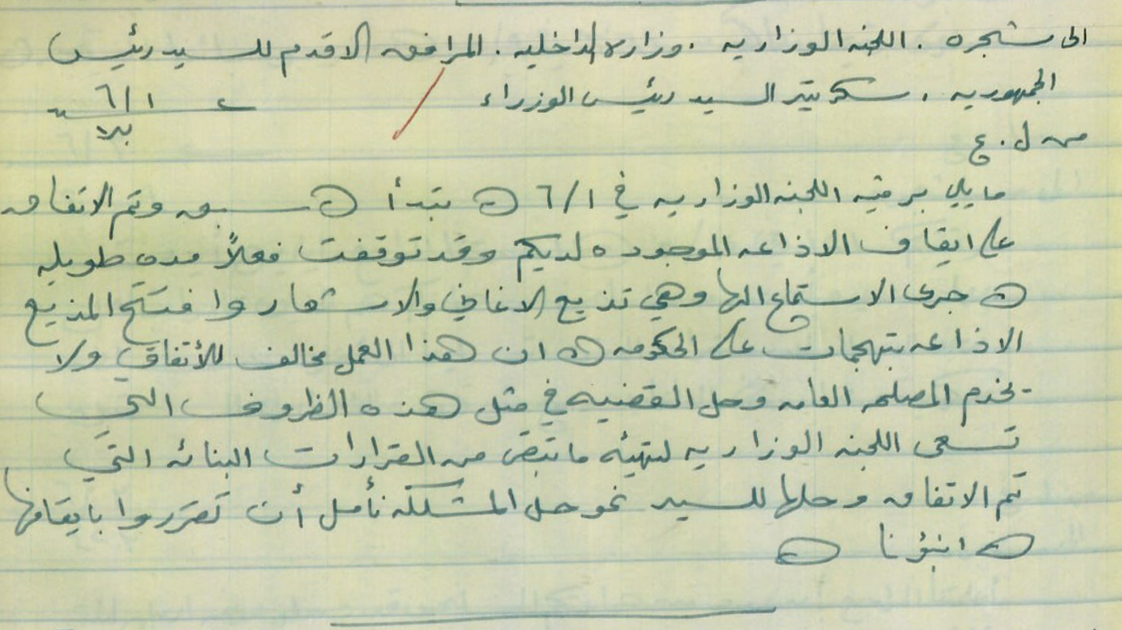 الى شجره . اللجنه الوزاريه . وزارة الداخليه . المرافق الاقدم للسيد رئيس
الجمهوريه . سكرتير السيد رئيس الوزراء
٦/١
من ل . ع
ما يلي برقية اللجنه الوزاريه في ٦/١ تبدأ سبق وتم الاتفاق
على ايقاف الاذاعه الموجوده لديكم وقد توقفت فعلاً مده طويله
جرى الاستماع الها وهي تذيع الاغاني والاشعار وافتتح المذيع
الاذاعه بتهجمات على الحكومه ان هذا العمل مخالف للأتفاق ولا
يخدم المصلحه العامه وحل القضيه في مثل هذه الظروف التي
تسعى اللجنه الوزاريه لتهيئه ما تبقى من القرارات البنائه التي
تم الاتفاق وحلها للسير نحو حل المشكله نأمل أن تقرروا بايقافها
انبؤنا